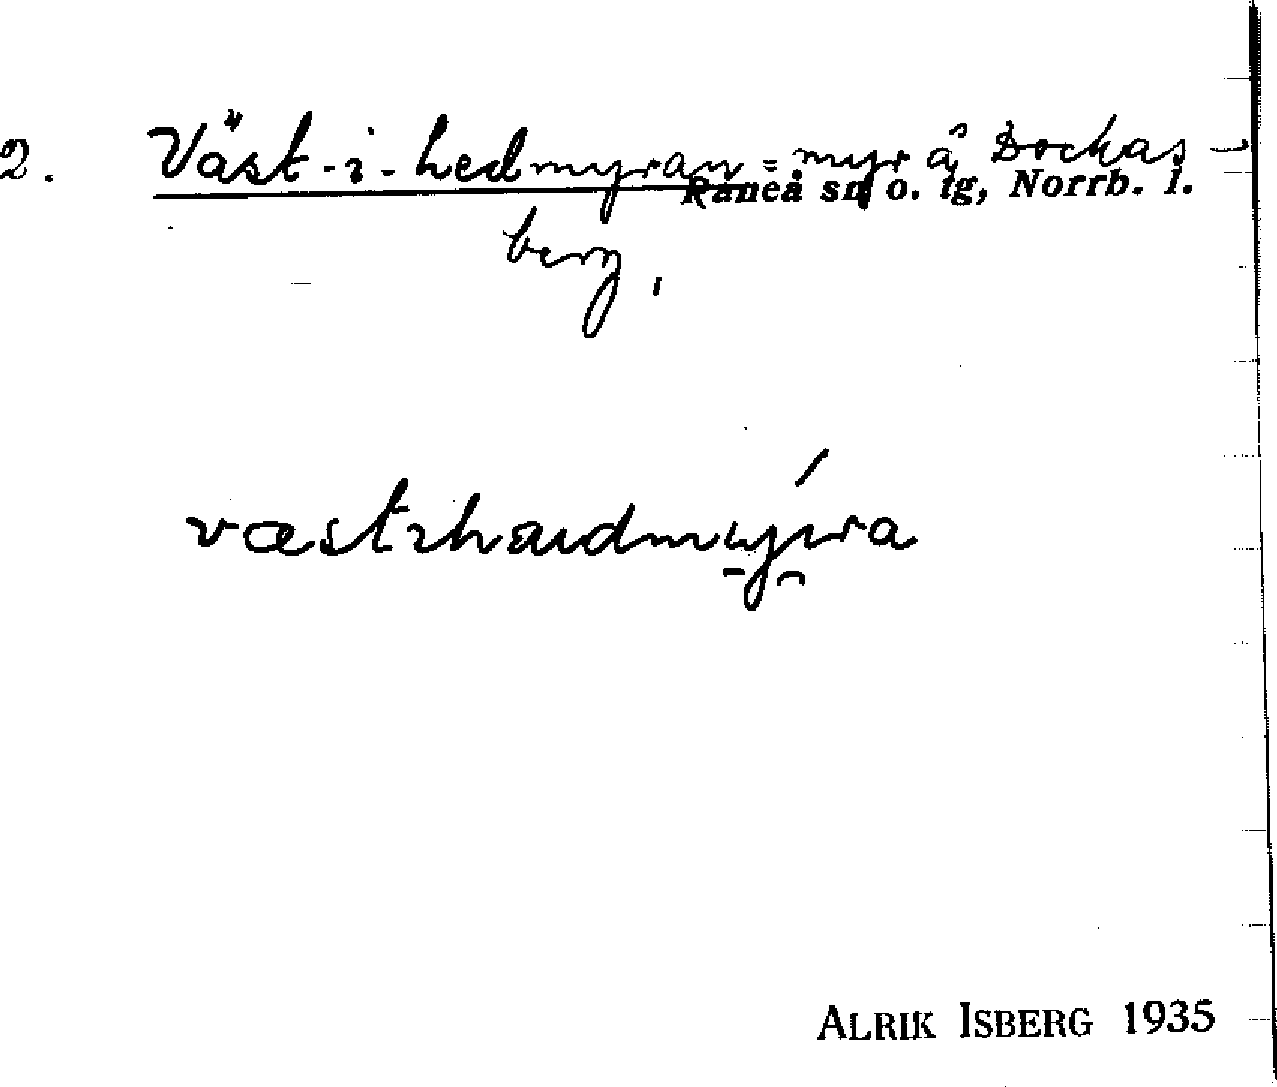 2. Väst-i-hedmyran = myr å Dockas-
Råneå sn o. tg, Norrb. l.
berg,
væstıhaıdmyı́ra
ALRIK ISBERG 1935